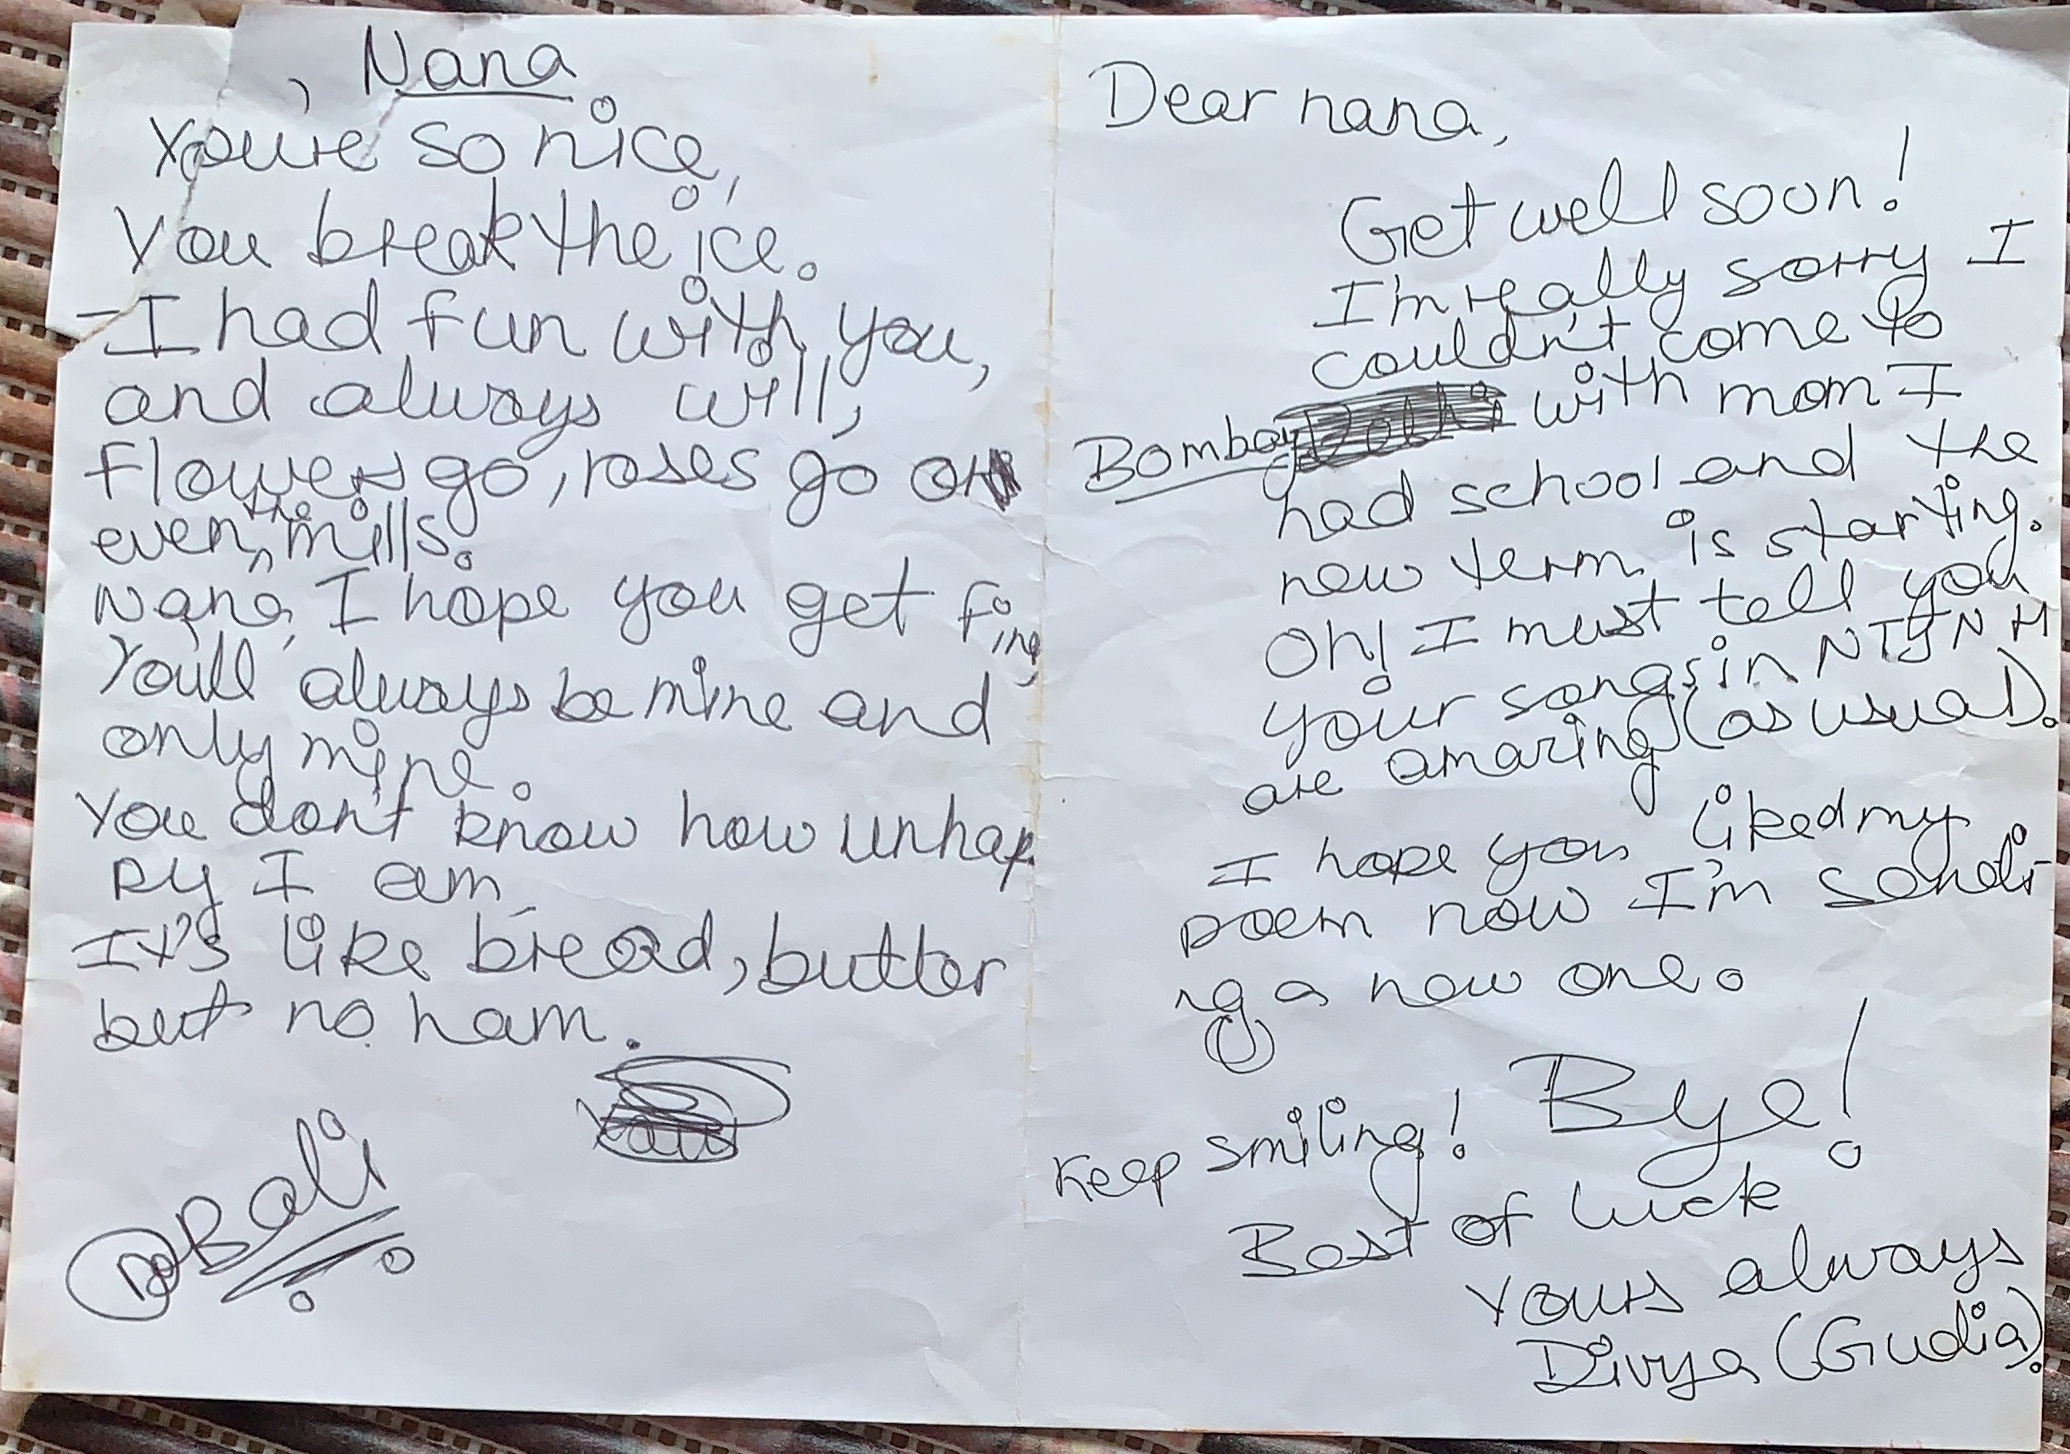 Nana
You're so nice,
You break the ice.
-I had fun with you,
and always will,
Flowers go, roses go or
even the mills.
Nana, I hope you get fine,
You'll always be mine and
only mine.
You don't know how unhap
py I am
It's like bread, butter
but no ham.
Bali
Dear nana,
Get well soon!
I'm really sorry I
couldn't come to
Bombay with mom I
had school and the
new term is starting.
Oh! I must tell you
your songs in NTJNH
are amazing (as usual).
I hope you liked my
poem now I'm sendi
ng a new one.
Bye!
Keep smiling!
Best of luck
Yours always
Divya (Gudia).